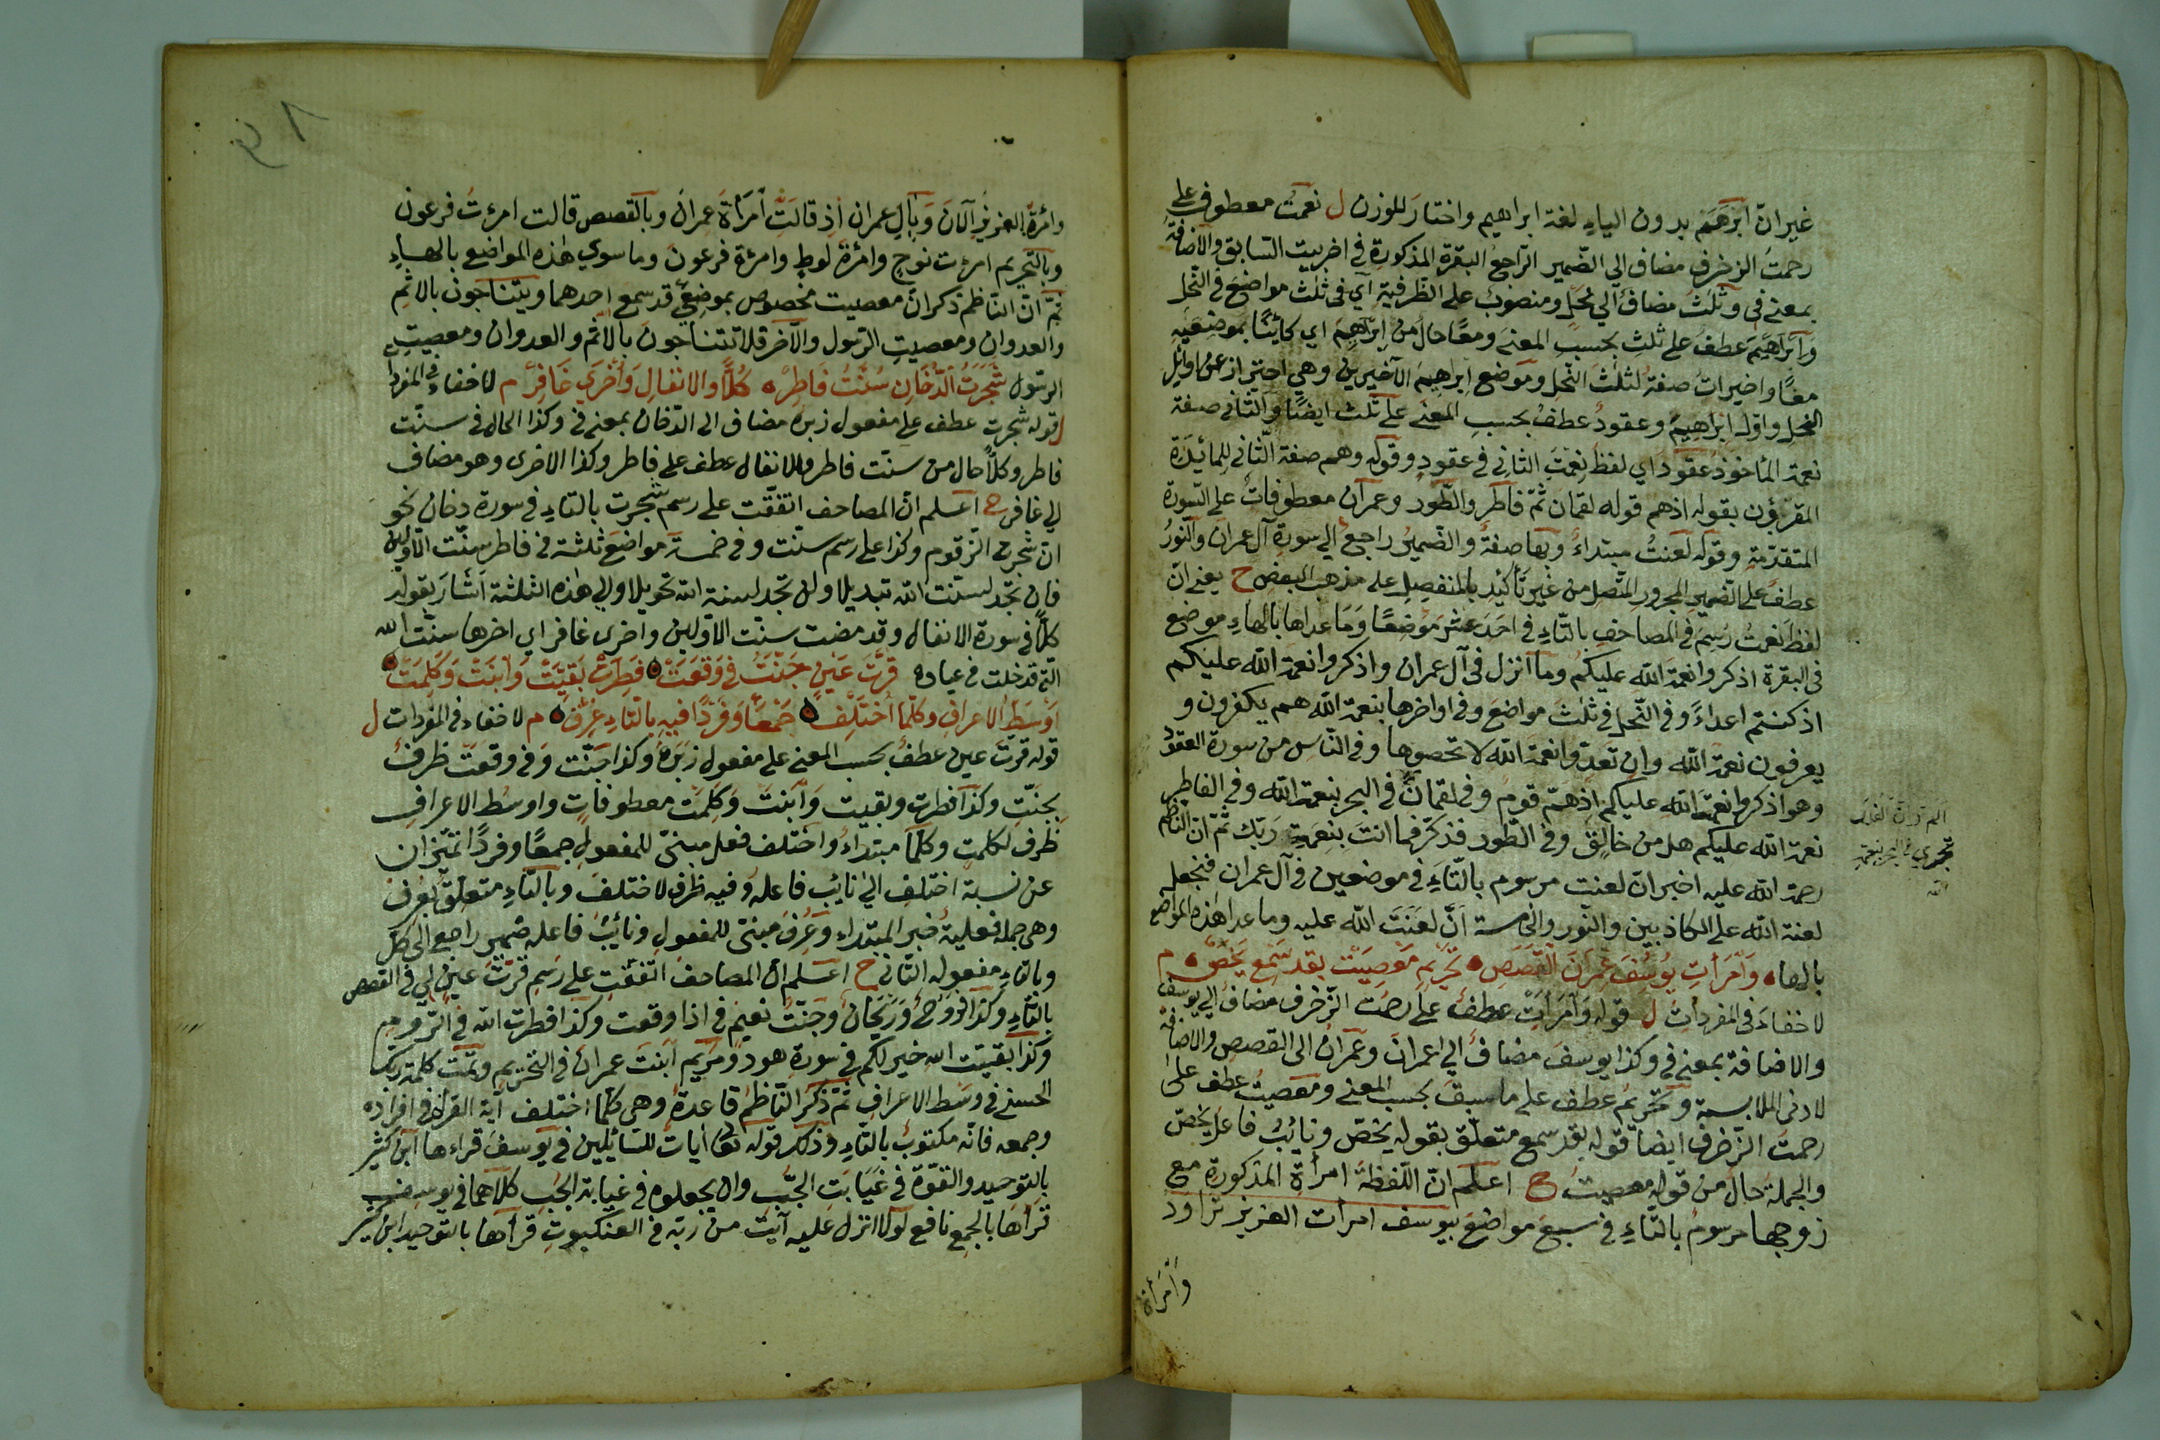 غير انّ ابرهم بدون الياء لغة ابراهيم واختار للوزن ل نعمت معطوف على
رحمت الزخرف مضاف الي الضمير الراجع البقرة المذكورة في اخر بيت السابق والاضافة
بمعنى في وثلث مضاف الي نحل ومنصوب على الظرفية اي في ثلث مواضع في النحل
وابرهم عطف على ثلث بحسب المعنى ومعًا حال من ابرهم اي كائنًا بموضعيه
معًا واخيرات صفة لثلث النحل وموضع ابرهيم الآخيرين وهي احتراز عن اوائل
النحل واول ابراهيم وعقود عطف بحسب المعنى على ثلث ايضًا والثاني صفة
نعمة المأخوذ عقود اي لفظ نعمت الثاني في عقود وقوله وهم صفة الثاني للمائدة
المقرؤن بقوله اذهم قوله لقمان ثمّ فاطر والطور وعمران معطوفات على السورة
المتقدمة وقوله لعنت مبتداءٌ وبها صفة والضمير راجع الي سورة آل عمران والنور
عطف على الضمير المجرور المتصل من غير تأكيد بالمنفصل على مذهب البعض ح يعني انّ
لفظ نعمت رسم في المصاحف بالتاء في احد عشر موضعًا وما عداها بالهاء موضع
في البقرة اذكروا نعمة الله عليكم وما انزل في آل عمران واذكروا نعمة الله عليكم
اذ كنتم اعداءً وفي النحل في ثلث مواضع وفي اواخرها بنعمة الله هم يكفرون و
يعرفون نعمة الله وان تعدّوا نعمة الله لا تحصوها وفي الناس من سورة العقود
وهو اذكروا نعمة الله عليكم اذهمّ قوم وفي لقمان في البحر بنعمة الله وفي الفاطر
نعمة الله عليكم هل من خالق وفي الطور فذكّر فما انت بنعمة ربّك ثمّ انّ الناظم
رحمة الله عليه اخبر ان لعنت مرسوم بالتاء في موضعين في آل عمران فنجعل
لعنة الله على الكاذبين والنور والخامسة انّ لعنت الله عليه وما عدا هذه المواضع
بالها وامرات يوسف عمران القصص تحريم معصيت بقد سمع يخص م
لا خفاءَ في المفردات ل قوله وامرات عطف على رحمت الزخرف مضاف الي يوسف
والاضافة بمعنى في وكذا يوسف مضاف الي اعمران وعمران الى القصص والاضافة
لادنى الملابسة وتحريم عطف على ما سبق بحسب المعنى ومعصيت عطف على
رحمت الزخرف ايضا قوله بقد سمع متعلّق بقوله يخصّ ونائب فاعل يخصّ
والجملة حال من قوله معصيت ح اعلم ان اللفظة امرأة المذكورة مع
زوجها مرسوم بالتاء في سبع مواضع بيوسف امرات العزيز تراود
وامرأة
الم تر ان الفلك
تجري في البحر بنعمة
الله
وامرة العزيز الآن وبال عمران اذ قالت امرأة عمران وبالقصص قالت امرءت فرعون
وبالتحريم امرءت نوح وامرة لوط وامرة فرعون وما سوي هذه المواضع بالهاءِ
ثمّ انّ الناظم ذكر انّ معصيت مخصوص بموضعي قد سمع احدهما ويتناجون بالاثم
والعدوان ومعصيت الرسول والآخر فلا تتناجون بالاثم والعدوان ومعصيت
الرسول شجرت الدخان سنت فاطر كلًّا والانفال واخرى غافر م لا خفاء في المفردات
ل قوله شجرت عطف على مفعول زبره مضاف الى الدخان بمعنى في وكذا الحال في سنّت
فاطر وكلًّا حال من سنّت فاطر وللانفال عطف على فاطر وكذا الاخرى وهو مضاف
لي غافر ح اعلم انّ المصاحف اتفقت على رسم شجرت بالتاء في سورة دخان نحو
ان شجرت الزقوم وكذا على رسم سنت وفي خمسة مواضع ثلثة في فاطر سنّت الاولين
فان تجد لسنّت الله تبديلا ولن تجد لسنة الله تحويلا والي هذه الثلثة اشار بقوله
كلًّا في سورة الانفال وقد مضت سنّت الاولين واخرى غافر اي اخرها سنّت الله
التي قد خلت في عباده قرّت عين جنّت في وقعت فطرت بقيّت وابنت وكلمت
اوسط الاعراف وكلّما اختلف جمعًا وفردًا فيه بالتاءِ عرف م لا خفاء في المفردات ل
قوله قرت عين عطف بحسب المعنى على مفعول زبره وكذا جنّت وفي وقعت ظرف
بجنّت وكذا فطرت وبقيت وابنت وكلمت معطوفات واوسط الاعراف
ظرف لكلمت وكلما مبتداء واختلف فعل مبنيّ للمفعول جمعًا وفردًا تميّزان
عن نسبة اختلف الي نائب فاعله وفيه ظرف لاختلف وبالتاءِ متعلّق بعرف
وهي جملة فعلية خبر المبتداء وعرف مبنىّ للمفعول ونائب فاعله ضمير راجع الي كل
وبالتاءِ مفعوله الثاني ح اعلم ان المصاحف اتفقت على رسم قرّت عين لي في القصص
بالتاءِ وكذا فروح وريحان وجنّت نعيم في اذا وقعت وكذا فطرت الله في الروم
وكذا بقيت الله خير لكم في سورة هود ومريم ابنت عمران في التحريم وتمّت كلمة ربّك
الحسنى في وسط الاعراف ثمّ ذكر الناظم قاعدة وهي كلما اختلف آية القرآن في افراده
وجمعه فانّه مكتوب بالتاءِ وذلك قوله تعا ايات للسائلين في يوسف قراءها ابن كثير
بالتوحيد والقوة في غيابت الجبّ وان يجعلوه في غيابة الجب كلاهما في يوسف
قرأها بالجمع نافع لولا انزل عليه آيت من ربّه في العنكبوت قرأها بالتوحيد ابن كثير